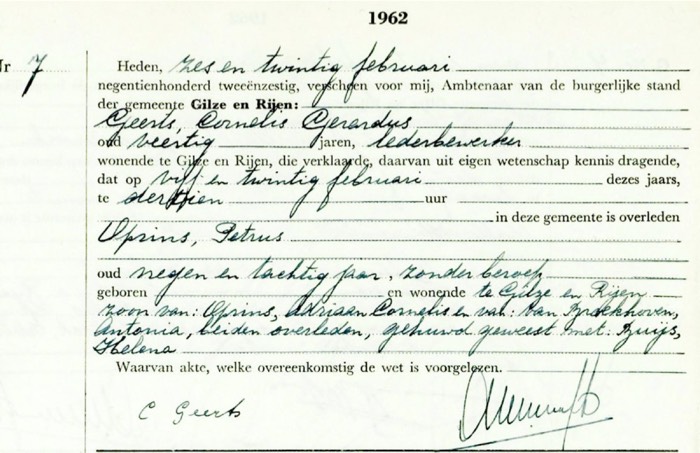 1962
Nr 7
Heden, zes en twintig februari
negentienhonderd tweeënzestig, verscheen voor mij, Ambtenaar van de burgerlijke stand
der gemeente Gilze en Rijen:
Geerts, Cornelis Gerardus
oud veertig jaren, lederbewerker
wonende te Gilze en Rijen, die verklaarde, daarvan uit eigen wetenschap kennis dragende,
dat op vijf en twintig februari dezes jaars,
te dertien uur
in deze gemeente is overleden
Oprins, Petrus
oud negen en tachtig jaar, zonder beroep
geboren en wonende te Gilze en Rijen
zoon van: Oprins, Adriaan Cornelis en van: van Broekhoven,
Antonia, beiden overleden, gehuwd geweest met: Buijs,
Helena
Waarvan akte, welke overeenkomstig de wet is voorgelezen.
C Geerts